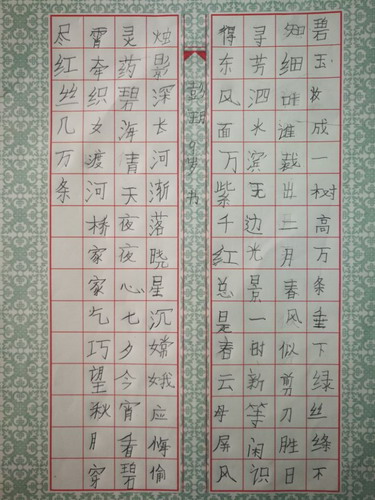 碧玉妆成一树高万条垂下绿丝绦不
知细叶谁裁出二月春风似剪刀胜日
寻芳泗水滨无边光景一时新等闲识
得东风面万紫千红总是春云母屏风
彭 岁书
烛影深长河渐落晓星沉嫦娥应悔偷
灵药碧海青天夜夜心七夕今宵看碧
霄牵织女渡河桥家家乞巧望秋月穿
尽红丝几万条